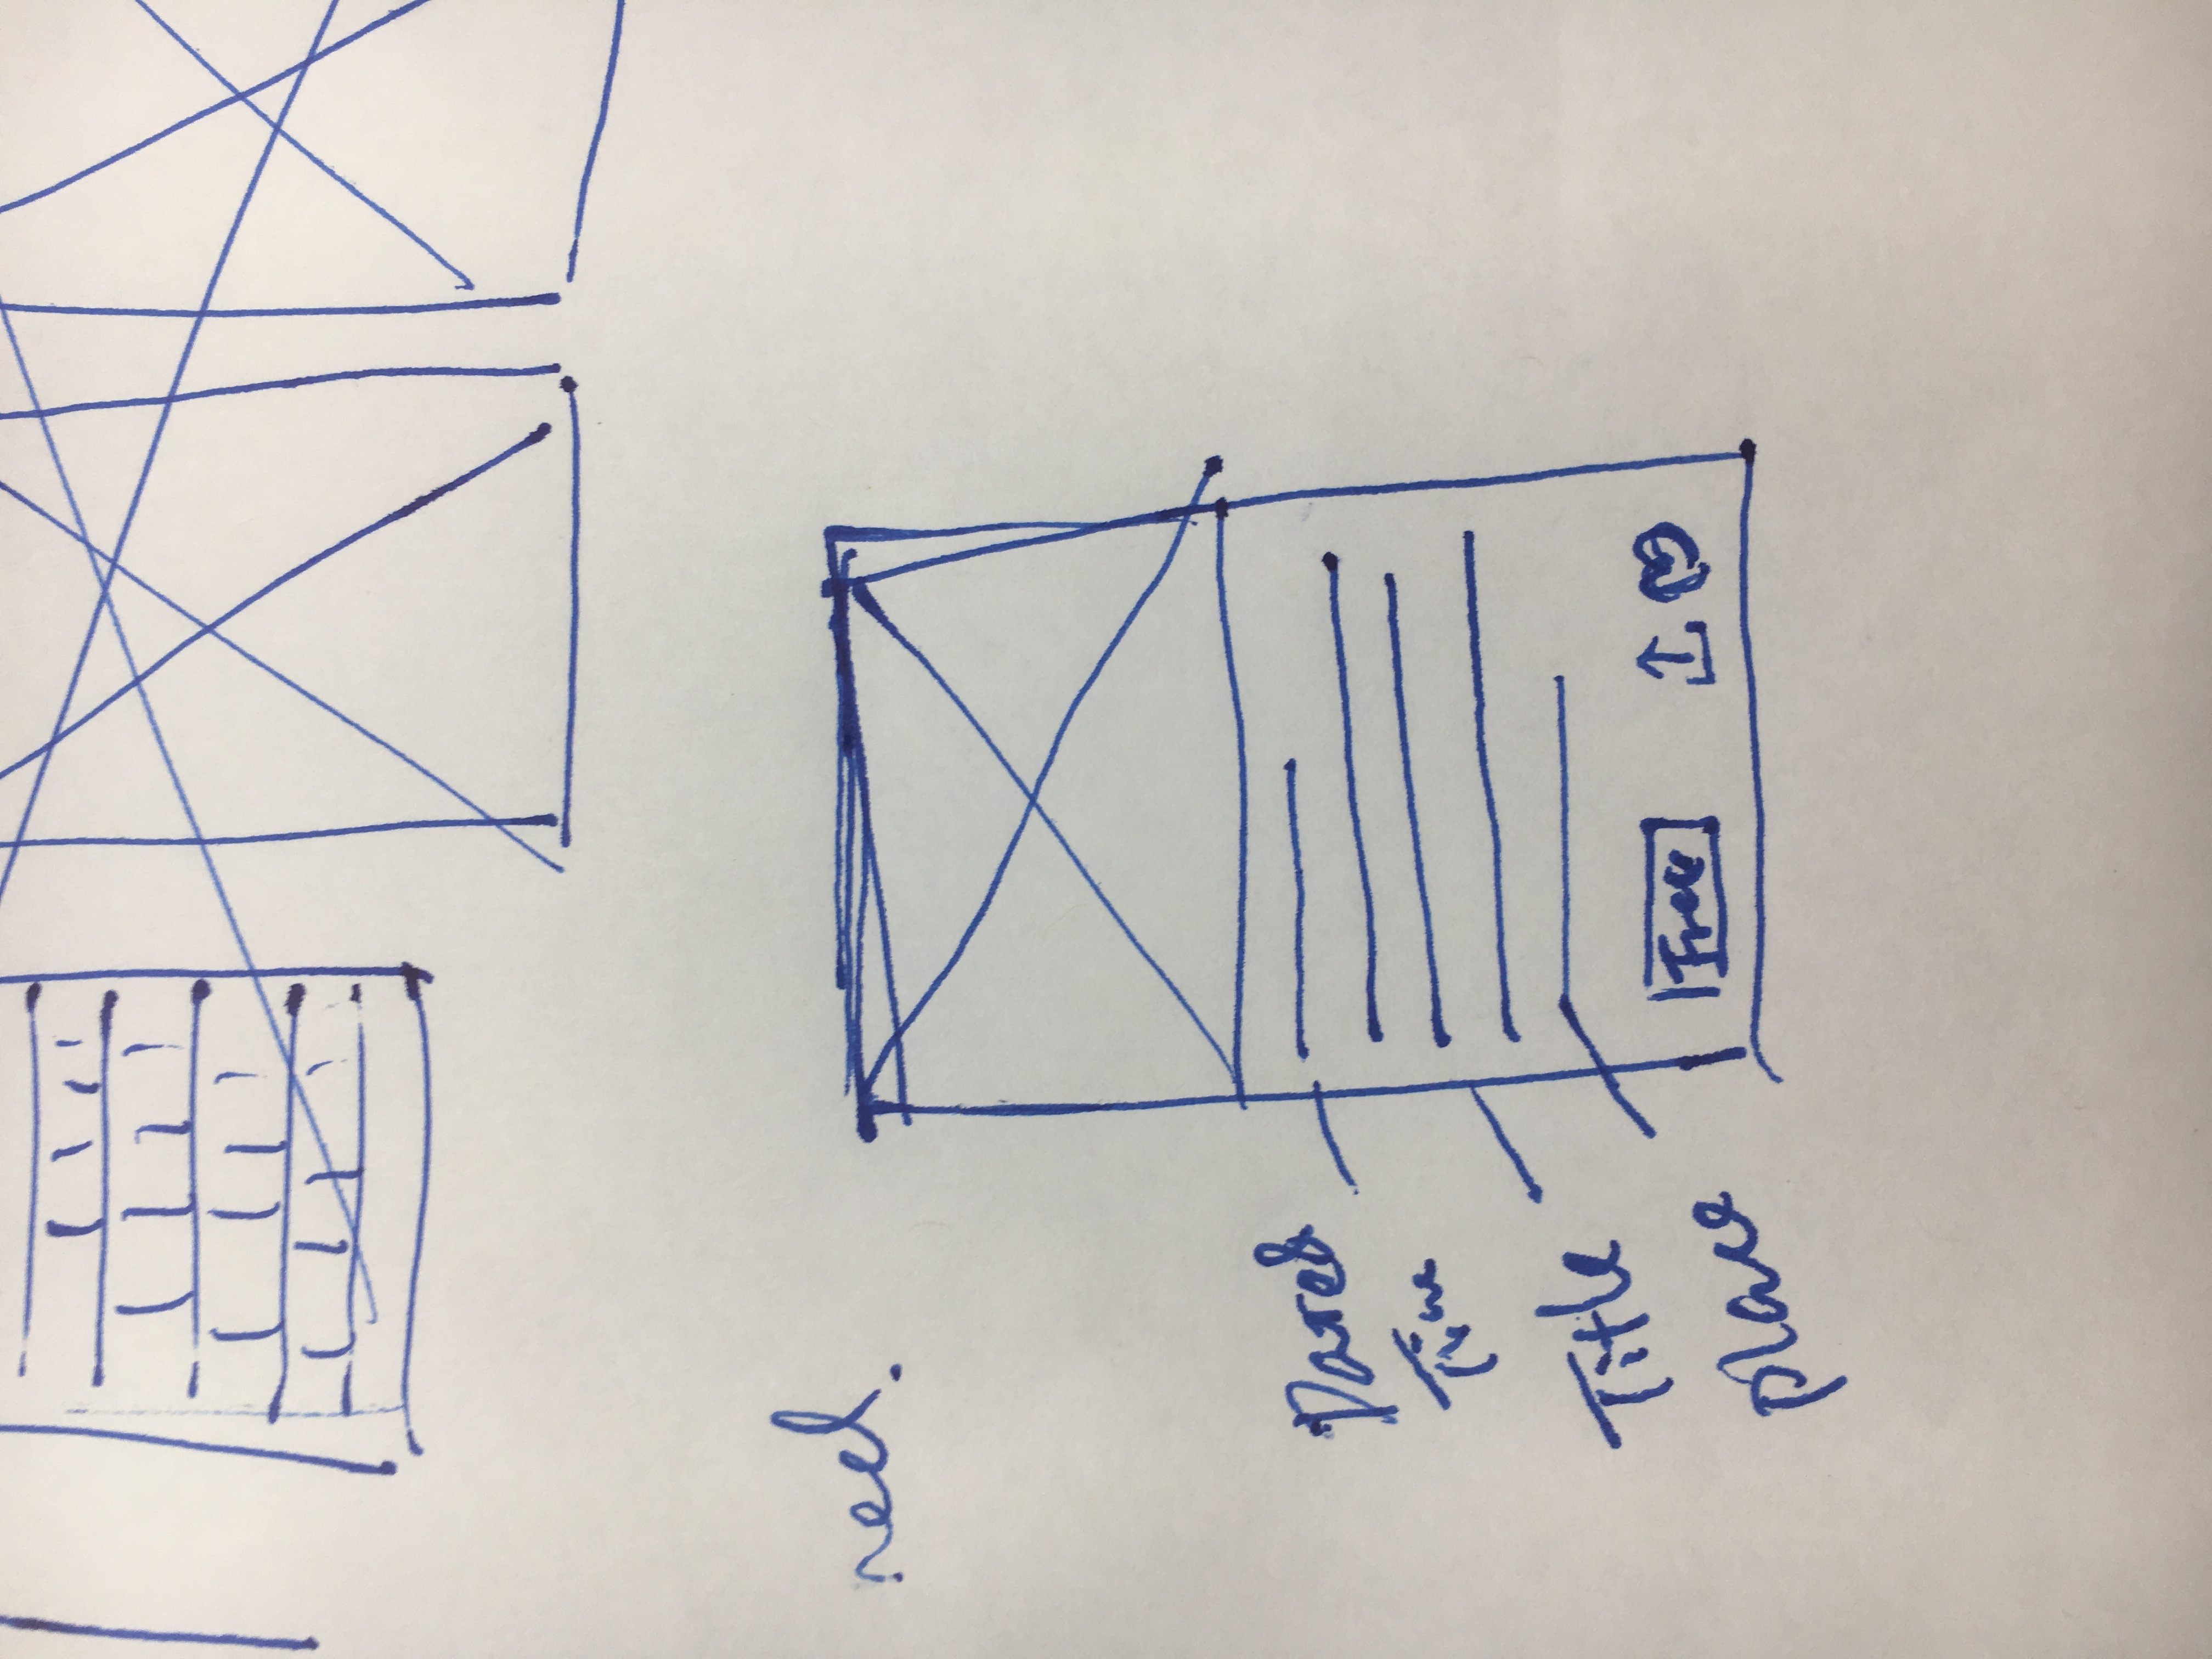 Date &
Time
Title
place
Free